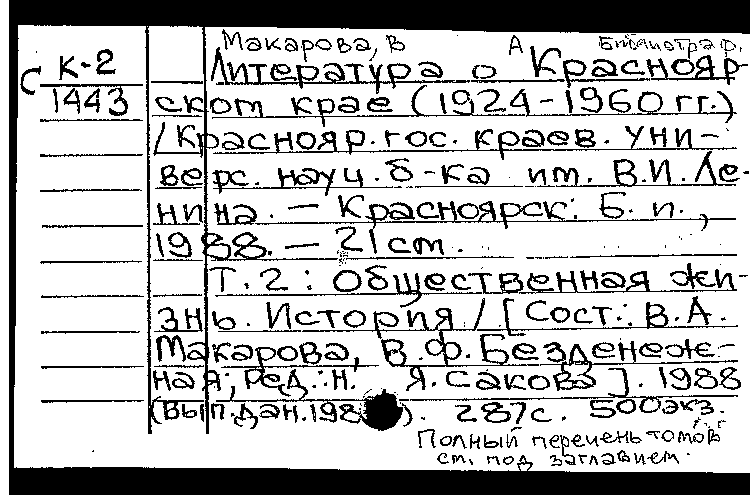 Макарова, В А Библиограф.
С К-2
1443
Литература о Краснояр-
ском крае (1924-1960 гг.)
/Краснояр. гос. краев. уни-
верс. науч. б-ка им. В.И. Ле-
нина. — Красноярск: Б. и.,
1988. — 21 см.
Т. 2: Общественная жи-
знь. История / [Сост.: В.А.
Макарова, В.Ф. Безденеж-
ная; Ред.: Н. Я. Сакова]. 1988
(вып. дан. 198 ). 287 с. 500 экз.
Полный перечень томов
см. под заглавием.